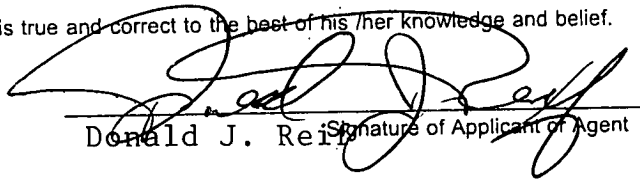 is true and correct to the best of his /her knowledge and belief.
Donald J. Reiff
Signature of Applicant or Agent